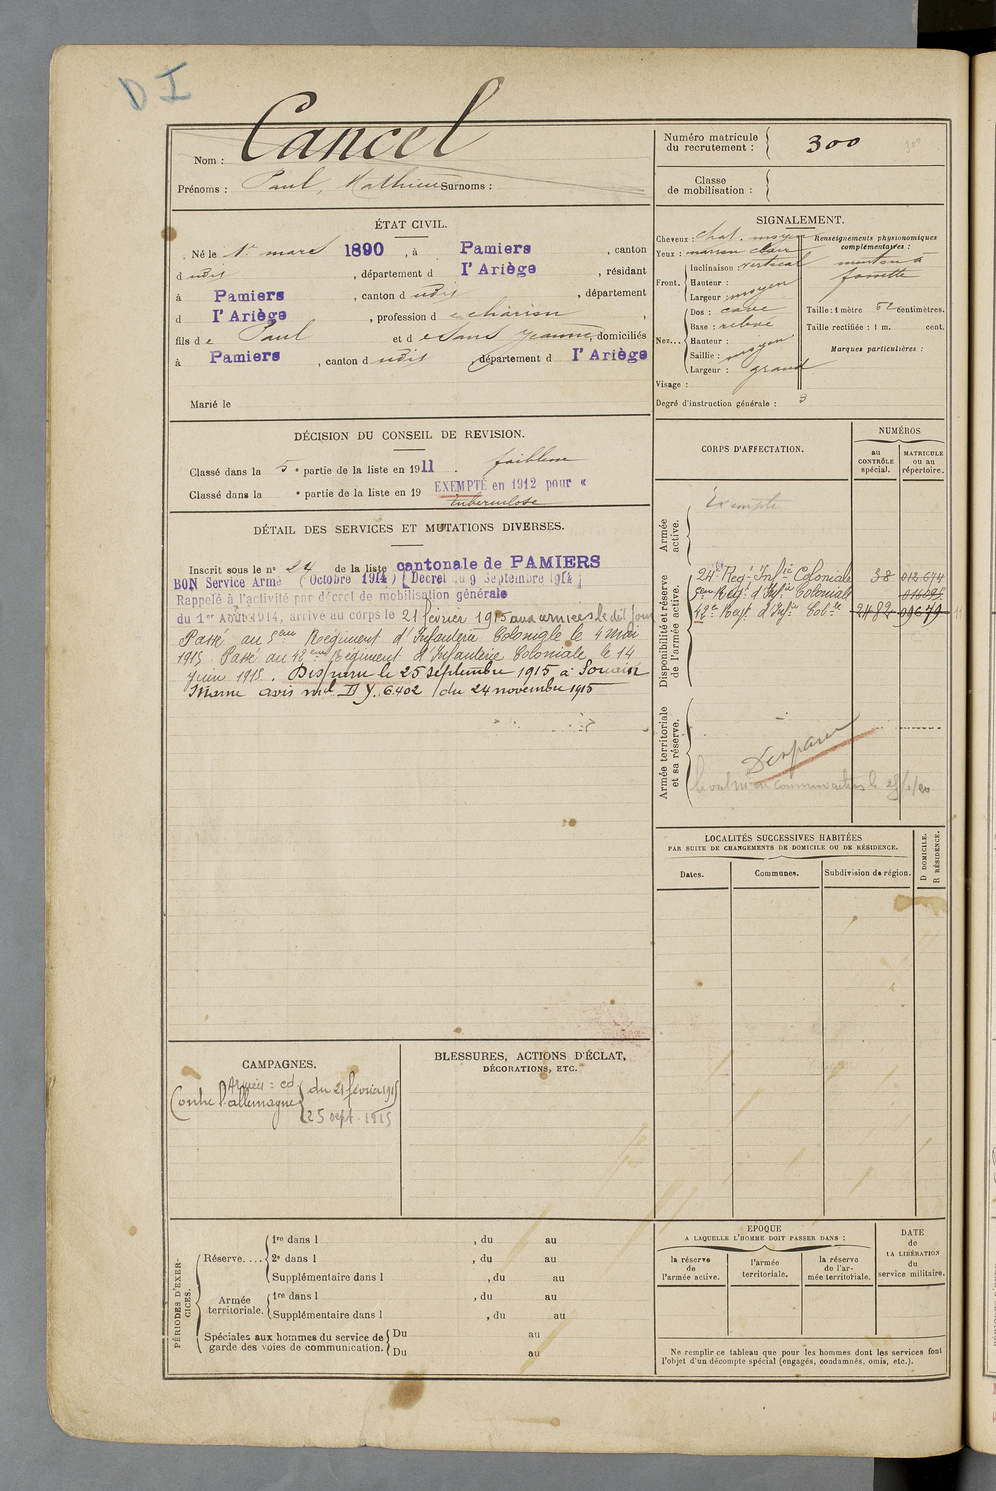 D I
Nom : Cancel
Prénoms : Paul, Mathieu Surnoms :
Numéro matricule du recrutement : 300
Classe de mobilisation :
ÉTAT CIVIL.
Né le 1er mars 1890, à Pamiers, canton
d udit, département d l'Ariège, résidant
à Pamiers, canton d udit, département
d l'Ariège, profession d e charron,
fils de Paul et de Sans Jeanne, domiciliés
à Pamiers, canton d udit, département d l'Ariège
Marié le
SIGNALEMENT.
Cheveux : chat. moyen
Yeux : marron clair
Front. Inclinaison : vertical
Hauteur :
Largeur : moyen
Nez... Dos : cave
Base : relevé
Hauteur :
Saillie : moyen
Largeur : grand
Visage :
Renseignements physionomiques complémentaires :
menton à
fossette
Taille : 1 mètre 52 centimètres.
Taille rectifiée : 1 m. cent.
Marques particulières :
Degré d'instruction générale : 3
DÉCISION DU CONSEIL DE REVISION.
Classé dans la 5e partie de la liste en 1911. faiblesse
Classé dans la e partie de la liste en 19 EXEMPTÉ en 1912 pour «
tuberculose
DÉTAIL DES SERVICES ET MUTATIONS DIVERSES.
Inscrit sous le n° 24 de la liste cantonale de PAMIERS
BON Service Armé (Octobre 1914) [Décret du 9 Septembre 1914]
Rappelé à l'activité par décret de mobilisation générale
du 1er Août 1914, arrivé au corps le 21 février 1915 aux armées le dit jour
Passé au 5ème Régiment d'Infanterie Coloniale le 4 mai
1915. Passé au 42ème Régiment d'Infanterie Coloniale, le 14
juin 1915. Disparu le 25 septembre 1915 à Souain
Marne avis mel D Y. 6.402 du 24 novembre 1915
CORPS D'AFFECTATION.
NUMÉROS
au CONTRÔLE spécial.
MATRICULE ou au répertoire.
Armée active.
Exempté
Disponibilité et réserve de l'armée active.
24e Reg. Infie Coloniale 38 012.674
5ème Reg. d'Infie Coloniale
42e Regt d'Infie Colle 2482 09679
Armée territoriale et sa réserve.
Disparu
LOCALITÉS SUCCESSIVES HABITÉES
PAR SUITE DE CHANGEMENTS DE DOMICILE OU DE RÉSIDENCE.
Dates. Communes. Subdivision de région.
D DOMICILE.
R RÉSIDENCE.
CAMPAGNES.
Armées : cd
Contre l'allemagne du 21 février 1915
25 sept. 1915
BLESSURES, ACTIONS D'ÉCLAT,
DÉCORATIONS, ETC.
PÉRIODES D'EXERCICES.
Réserve.... 1re dans l , du au
2e dans l , du au
Supplémentaire dans l , du au
Armée territoriale. 1re dans l , du au
Supplémentaire dans l , du au
Spéciales aux hommes du service de garde des voies de communication. Du au
Du au
EPOQUE
A LAQUELLE L'HOMME DOIT PASSER DANS :
la réserve de l'armée active.
l'armée territoriale.
la réserve de l'armée territoriale.
DATE de LA LIBÉRATION du service militaire.
Ne remplir ce tableau que pour les hommes dont les services font
l'objet d'un décompte spécial (engagés, condamnés, omis, etc.).